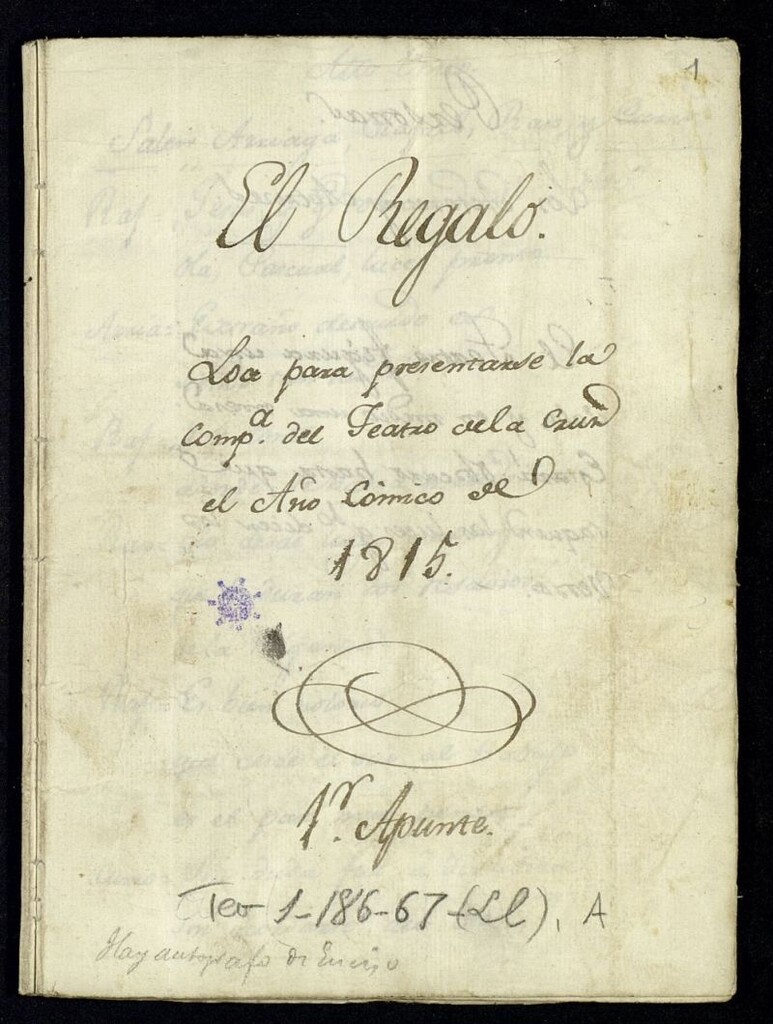 1
El Regalo.
Loa para presentarse la
Comp.ª del Teatro de la Cruz
el Año Cómico de
1815.
1r. Apunte.
Tea 1-186-67-(Ll), A
Hay autógrafo de Enciso